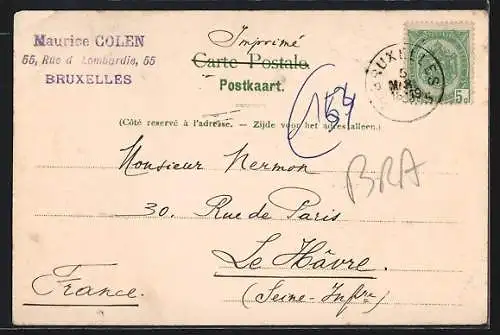 Maurice COLEN
55, Rue d Lombardie, 55
BRUXELLES
Imprimé
Carte Postale
Postkaart.
(Côté reservé à l'adresse. — Zijde voor het adres alleen.)
BRUXELLES
5
5c
154
BRA
Monsieur Nermon
30. Rue de Paris
Le Hâvre
(Seine-Infre)
France.